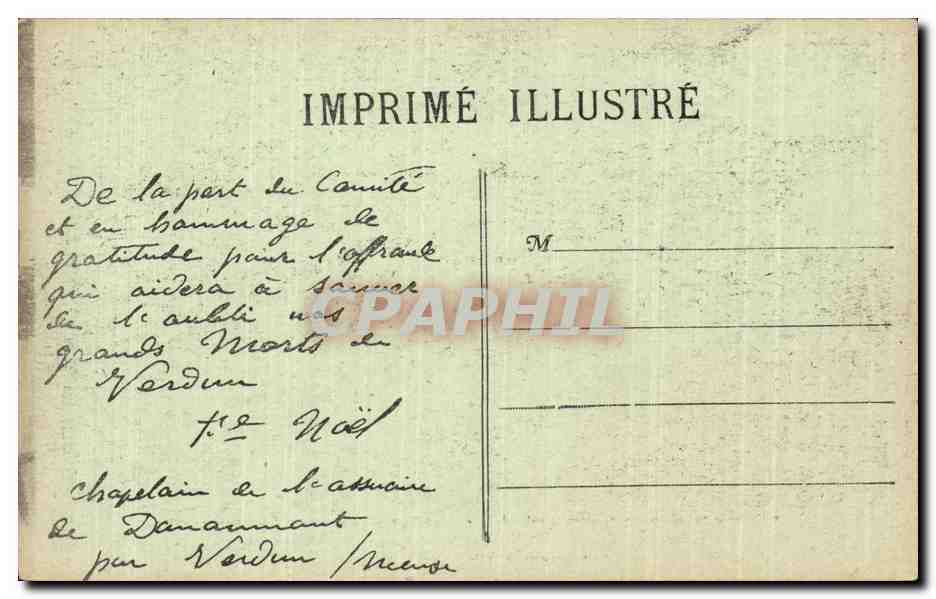 IMPRIMÉ ILLUSTRÉ
De la part du Comité
et en hommage de
gratitude pour l'offrande
qui aidera à sauver
de l'oubli nos
grands Morts de
Verdun
Noël
chapelain de l'ossuaire
de Douaumont
par Verdun /Meuse
M
CPAPHIL